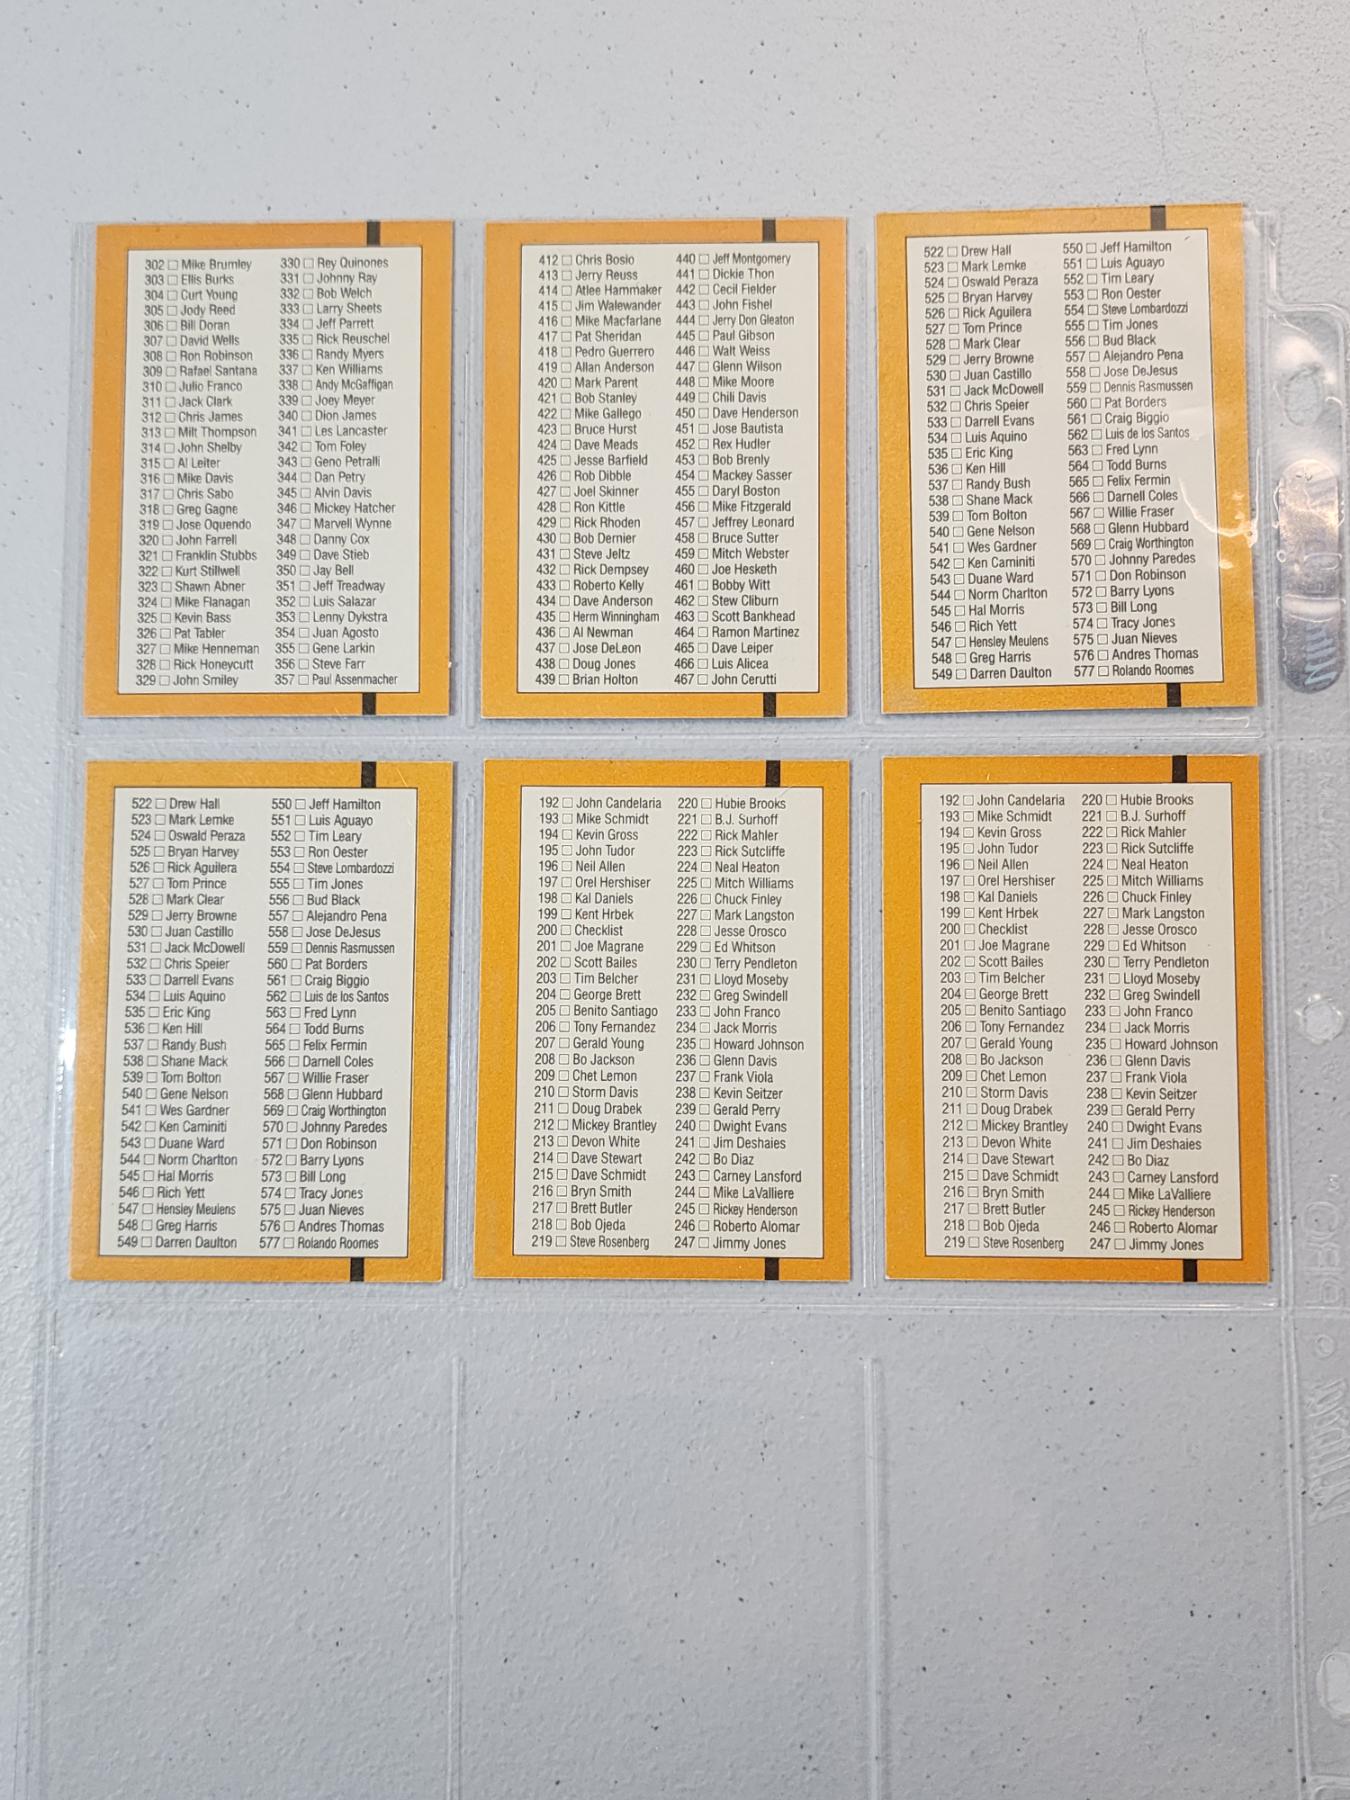 302 Mike Brumley
303 Ellis Burks
304 Curt Young
305 Jody Reed
306 Bill Doran
307 David Wells
308 Ron Robinson
309 Rafael Santana
310 Julio Franco
311 Jack Clark
312 Chris James
313 Milt Thompson
314 John Shelby
315 Al Leiter
316 Mike Davis
317 Chris Sabo
318 Greg Gagne
319 Jose Oquendo
320 John Farrell
321 Franklin Stubbs
322 Kurt Stillwell
323 Shawn Abner
324 Mike Flanagan
325 Kevin Bass
326 Pat Tabler
327 Mike Henneman
328 Rick Honeycutt
329 John Smiley
330 Rey Quinones
331 Johnny Ray
332 Bob Welch
333 Larry Sheets
334 Jeff Parrett
335 Rick Reuschel
336 Randy Myers
337 Ken Williams
338 Andy McGaffigan
339 Joey Meyer
340 Dion James
341 Les Lancaster
342 Tom Foley
343 Geno Petralli
344 Dan Petry
345 Alvin Davis
346 Mickey Hatcher
347 Marvell Wynne
348 Danny Cox
349 Dave Stieb
350 Jay Bell
351 Jeff Treadway
352 Luis Salazar
353 Lenny Dykstra
354 Juan Agosto
355 Gene Larkin
356 Steve Farr
357 Paul Assenmacher
412 Chris Bosio
413 Jerry Reuss
414 Atlee Hammaker
415 Jim Walewander
416 Mike Macfarlane
417 Pat Sheridan
418 Pedro Guerrero
419 Allan Anderson
420 Mark Parent
421 Bob Stanley
422 Mike Gallego
423 Bruce Hurst
424 Dave Meads
425 Jesse Barfield
426 Rob Dibble
427 Joel Skinner
428 Ron Kittle
429 Rick Rhoden
430 Bob Dernier
431 Steve Jeltz
432 Rick Dempsey
433 Roberto Kelly
434 Dave Anderson
435 Herm Winningham
436 Al Newman
437 Jose DeLeon
438 Doug Jones
439 Brian Holton
440 Jeff Montgomery
441 Dickie Thon
442 Cecil Fielder
443 John Fishel
444 Jerry Don Gleaton
445 Paul Gibson
446 Walt Weiss
447 Glenn Wilson
448 Mike Moore
449 Chili Davis
450 Dave Henderson
451 Jose Bautista
452 Rex Hudler
453 Bob Brenly
454 Mackey Sasser
455 Daryl Boston
456 Mike Fitzgerald
457 Jeffrey Leonard
458 Bruce Sutter
459 Mitch Webster
460 Joe Hesketh
461 Bobby Witt
462 Stew Cliburn
463 Scott Bankhead
464 Ramon Martinez
465 Dave Leiper
466 Luis Alicea
467 John Cerutti
522 Drew Hall
523 Mark Lemke
524 Oswald Peraza
525 Bryan Harvey
526 Rick Aguilera
527 Tom Prince
528 Mark Clear
529 Jerry Browne
530 Juan Castillo
531 Jack McDowell
532 Chris Speier
533 Darrell Evans
534 Luis Aquino
535 Eric King
536 Ken Hill
537 Randy Bush
538 Shane Mack
539 Tom Bolton
540 Gene Nelson
541 Wes Gardner
542 Ken Caminiti
543 Duane Ward
544 Norm Charlton
545 Hal Morris
546 Rich Yett
547 Hensley Meulens
548 Greg Harris
549 Darren Daulton
550 Jeff Hamilton
551 Luis Aguayo
552 Tim Leary
553 Ron Oester
554 Steve Lombardozzi
555 Tim Jones
556 Bud Black
557 Alejandro Pena
558 Jose DeJesus
559 Dennis Rasmussen
560 Pat Borders
561 Craig Biggio
562 Luis de los Santos
563 Fred Lynn
564 Todd Burns
565 Felix Fermin
566 Darnell Coles
567 Willie Fraser
568 Glenn Hubbard
569 Craig Worthington
570 Johnny Paredes
571 Don Robinson
572 Barry Lyons
573 Bill Long
574 Tracy Jones
575 Juan Nieves
576 Andres Thomas
577 Rolando Roomes
522 Drew Hall
523 Mark Lemke
524 Oswald Peraza
525 Bryan Harvey
526 Rick Aguilera
527 Tom Prince
528 Mark Clear
529 Jerry Browne
530 Juan Castillo
531 Jack McDowell
532 Chris Speier
533 Darrell Evans
534 Luis Aquino
535 Eric King
536 Ken Hill
537 Randy Bush
538 Shane Mack
539 Tom Bolton
540 Gene Nelson
541 Wes Gardner
542 Ken Caminiti
543 Duane Ward
544 Norm Charlton
545 Hal Morris
546 Rich Yett
547 Hensley Meulens
548 Greg Harris
549 Darren Daulton
550 Jeff Hamilton
551 Luis Aguayo
552 Tim Leary
553 Ron Oester
554 Steve Lombardozzi
555 Tim Jones
556 Bud Black
557 Alejandro Pena
558 Jose DeJesus
559 Dennis Rasmussen
560 Pat Borders
561 Craig Biggio
562 Luis de los Santos
563 Fred Lynn
564 Todd Burns
565 Felix Fermin
566 Darnell Coles
567 Willie Fraser
568 Glenn Hubbard
569 Craig Worthington
570 Johnny Paredes
571 Don Robinson
572 Barry Lyons
573 Bill Long
574 Tracy Jones
575 Juan Nieves
576 Andres Thomas
577 Rolando Roomes
192 John Candelaria
193 Mike Schmidt
194 Kevin Gross
195 John Tudor
196 Neil Allen
197 Orel Hershiser
198 Kal Daniels
199 Kent Hrbek
200 Checklist
201 Joe Magrane
202 Scott Bailes
203 Tim Belcher
204 George Brett
205 Benito Santiago
206 Tony Fernandez
207 Gerald Young
208 Bo Jackson
209 Chet Lemon
210 Storm Davis
211 Doug Drabek
212 Mickey Brantley
213 Devon White
214 Dave Stewart
215 Dave Schmidt
216 Bryn Smith
217 Brett Butler
218 Bob Ojeda
219 Steve Rosenberg
220 Hubie Brooks
221 B.J. Surhoff
222 Rick Mahler
223 Rick Sutcliffe
224 Neal Heaton
225 Mitch Williams
226 Chuck Finley
227 Mark Langston
228 Jesse Orosco
229 Ed Whitson
230 Terry Pendleton
231 Lloyd Moseby
232 Greg Swindell
233 John Franco
234 Jack Morris
235 Howard Johnson
236 Glenn Davis
237 Frank Viola
238 Kevin Seitzer
239 Gerald Perry
240 Dwight Evans
241 Jim Deshaies
242 Bo Diaz
243 Carney Lansford
244 Mike LaValliere
245 Rickey Henderson
246 Roberto Alomar
247 Jimmy Jones
192 John Candelaria
193 Mike Schmidt
194 Kevin Gross
195 John Tudor
196 Neil Allen
197 Orel Hershiser
198 Kal Daniels
199 Kent Hrbek
200 Checklist
201 Joe Magrane
202 Scott Bailes
203 Tim Belcher
204 George Brett
205 Benito Santiago
206 Tony Fernandez
207 Gerald Young
208 Bo Jackson
209 Chet Lemon
210 Storm Davis
211 Doug Drabek
212 Mickey Brantley
213 Devon White
214 Dave Stewart
215 Dave Schmidt
216 Bryn Smith
217 Brett Butler
218 Bob Ojeda
219 Steve Rosenberg
220 Hubie Brooks
221 B.J. Surhoff
222 Rick Mahler
223 Rick Sutcliffe
224 Neal Heaton
225 Mitch Williams
226 Chuck Finley
227 Mark Langston
228 Jesse Orosco
229 Ed Whitson
230 Terry Pendleton
231 Lloyd Moseby
232 Greg Swindell
233 John Franco
234 Jack Morris
235 Howard Johnson
236 Glenn Davis
237 Frank Viola
238 Kevin Seitzer
239 Gerald Perry
240 Dwight Evans
241 Jim Deshaies
242 Bo Diaz
243 Carney Lansford
244 Mike LaValliere
245 Rickey Henderson
246 Roberto Alomar
247 Jimmy Jones